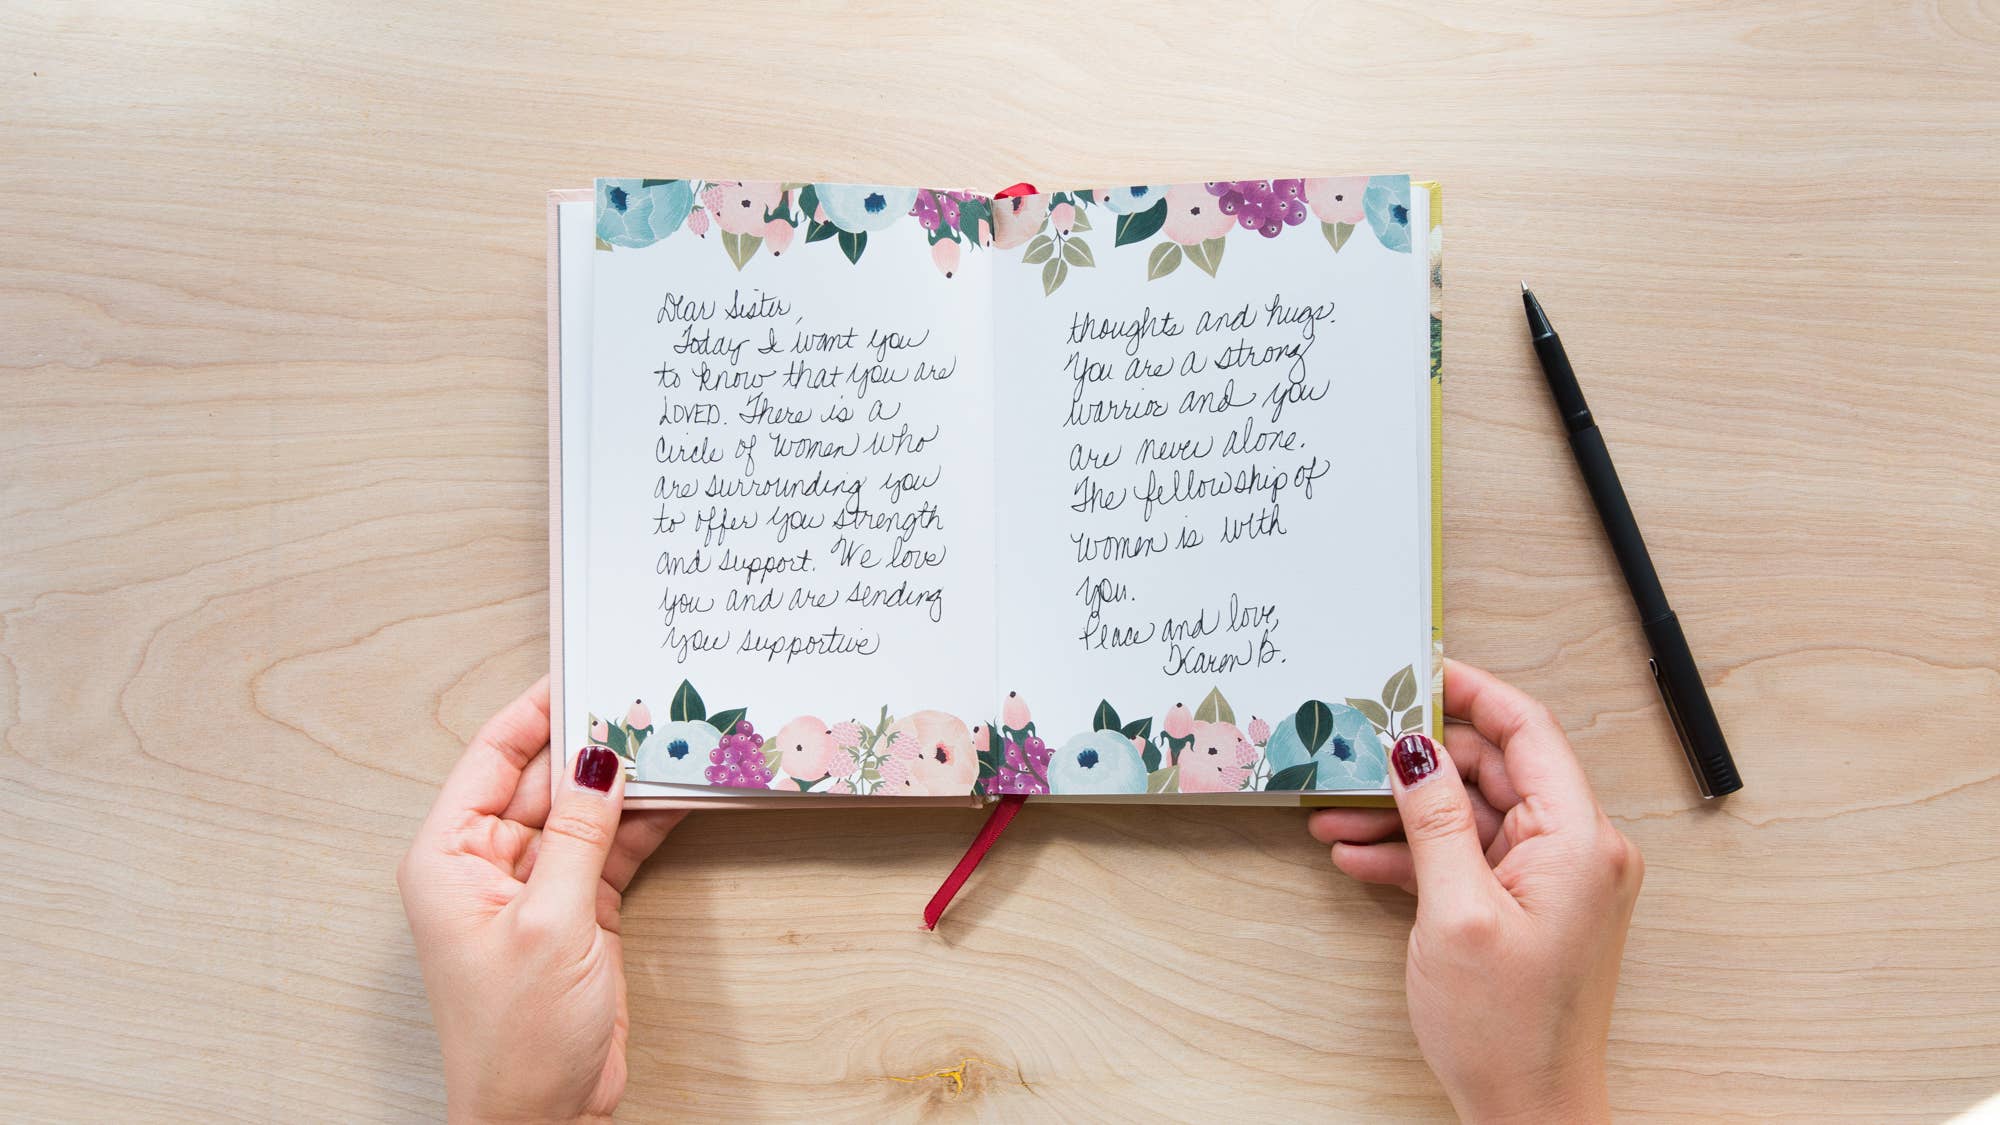 Dear Sister,
Today I want you
to know that you are
LOVED. There is a
Circle of Women who
are surrounding you
to offer you strength
and support. We love
you and are sending
you supportive
thoughts and hugs.
You are a strong
warrior and you
are never alone.
The fellowship of
women is with
you.
Peace and love,
Karen B.